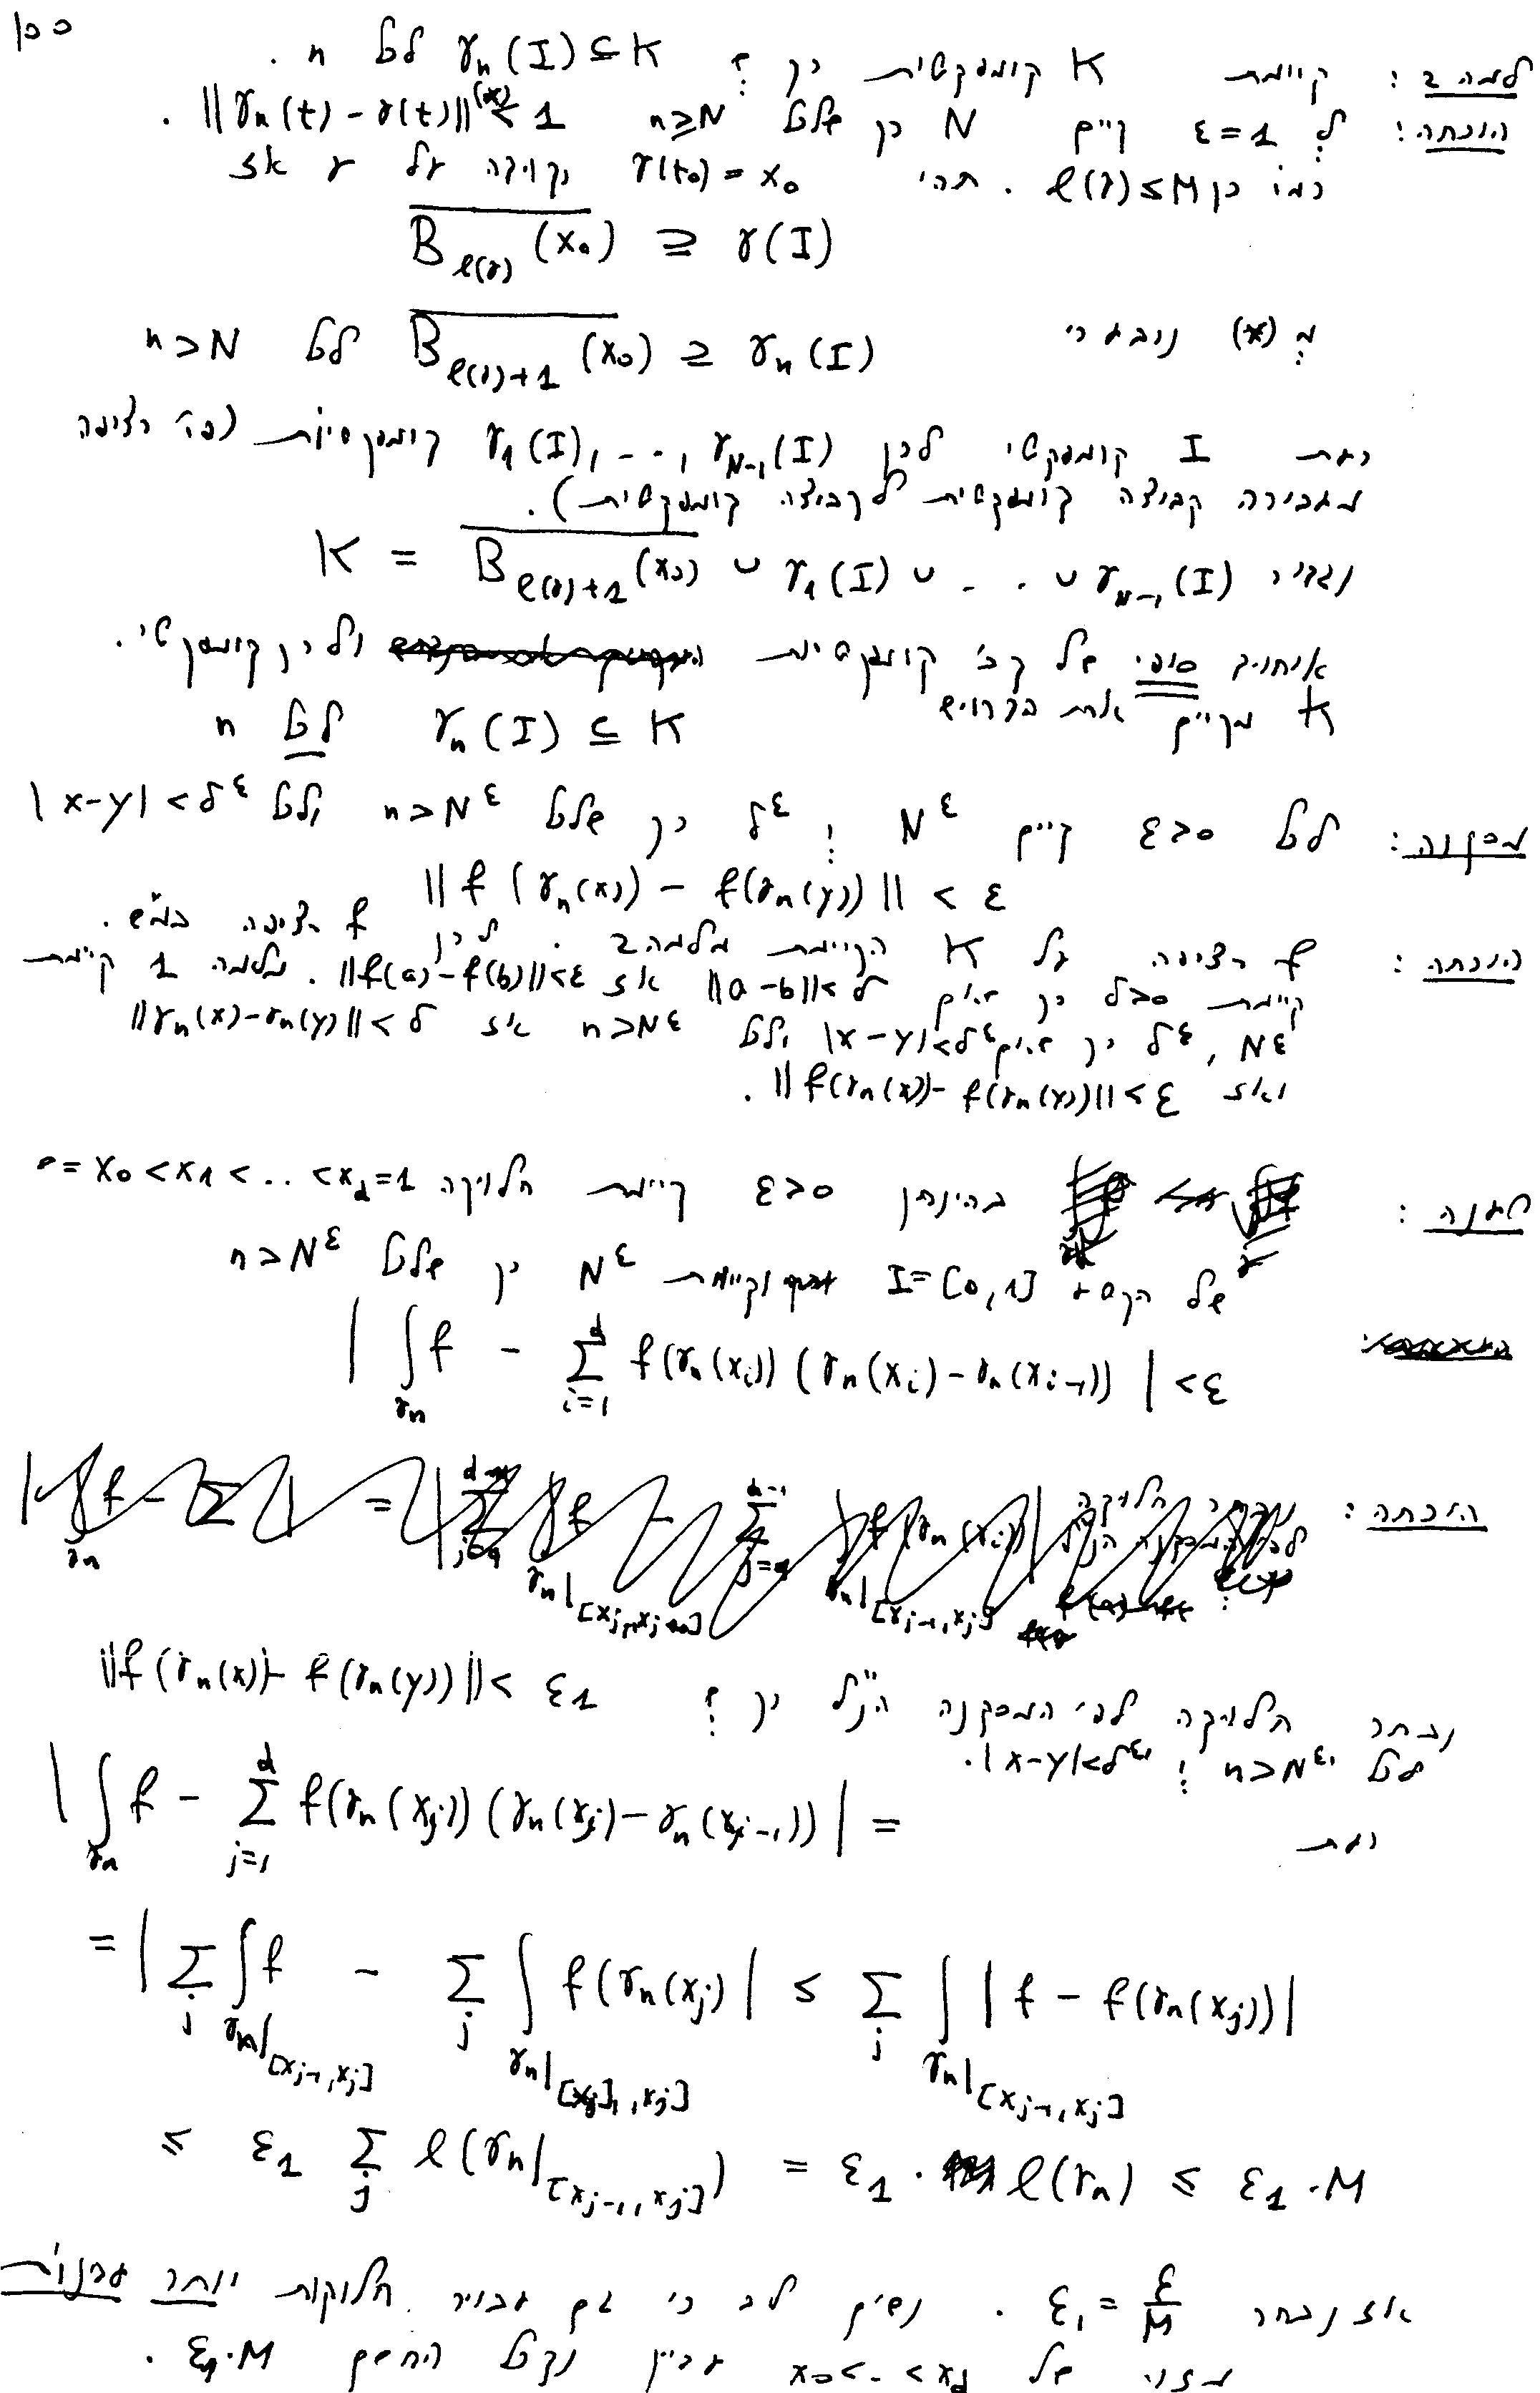 100
למה 2: קיימת K קומפקטית כך ש: γₙ(I) ⊆ K לכל n.
הוכחה: ל ε=1 קיים N כך שלכל n≥N ‖γₙ(t) - γ(t)‖ <⁽*⁾ 1.
כמו כן l(γ) ≤ M. תהי γ(t₀) = x₀ נקודה על γ אז
\overline{B_{l(γ)}(x₀)} ⊇ γ(I)
מ (*) נובע כי \overline{B_{l(γ)+1}(x₀)} ⊇ γₙ(I) לכל n>N
כעת I קומפקטי לכן γ₁(I), ..., γ_{N-1}(I) קומפקטיות (פו' רציפה
מעבירה קבוצה קומפקטית לקבוצה קומפקטית).
נגדיר K = \overline{B_{l(γ)+1}(x₀)} ∪ γ₁(I) ∪ ... ∪ γ_{N-1}(I)
איחוד סופי של קב' קומפקטיות ולכן קומפקטי.
K מקיים את הדרוש γₙ(I) ⊆ K לכל n
מסקנה: לכל ε>0 קיים N^ε ו: δ^ε כך שלכל n>N^ε ולכל |x-y|<δ^ε
‖f(γₙ(x)) - f(γₙ(y))‖ < ε
הוכחה: f רציפה על K הקיימת מלמה 2. לכן f רציפה במ"ש.
קיימת δ>0 כך שאם ‖a-b‖<δ אז ‖f(a)-f(b)‖<ε. מלמה 1 קיימת
N^ε, δ^ε כך שאם |x-y|<δ^ε ולכל n>N^ε אז ‖γₙ(x)-γₙ(y)‖<δ
ואז ‖f(γₙ(x))-f(γₙ(y))‖<ε.
טענה: בהינתן ε>0 קיימת חלוקה 0=x₀<x₁<..<x_d=1
של הקטע I=[0,1] וקיימת N^ε כך שלכל n>N^ε
|∫_{γₙ} f - Σ_{i=1}^{d} f(γₙ(xᵢ))(γₙ(xᵢ)-γₙ(x_{i-1}))| < ε
הוכחה:
נבחר חלוקה לפי המסקנה הנ"ל כך ש: ‖f(γₙ(x))- f(γₙ(y))‖< ε₁
לכל n>N^{ε₁} ו: |x-y|<δ^{ε₁}.
כעת |∫_{γₙ} f - Σ_{j=1}^{d} f(γₙ(x_j))(γₙ(x_j)-γₙ(x_{j-1}))| =
= |Σ_j ∫_{γₙ|[x_{j-1},x_j]} f - Σ_j ∫_{γₙ|[x_{j-1},x_j]} f(γₙ(x_j)| ≤ Σ_j ∫_{γₙ|[x_{j-1},x_j]} |f - f(γₙ(x_j))|
≤ ε₁ Σ_j l(γₙ|[x_{j-1},x_j]) = ε₁ · l(γₙ) ≤ ε₁·M
אז נבחר ε₁ = ε/M. נשים לב כי גם עבור חלוקות יותר עדנות
של x₀<..<x_d עדיין נקבל החסם ε₁·M.